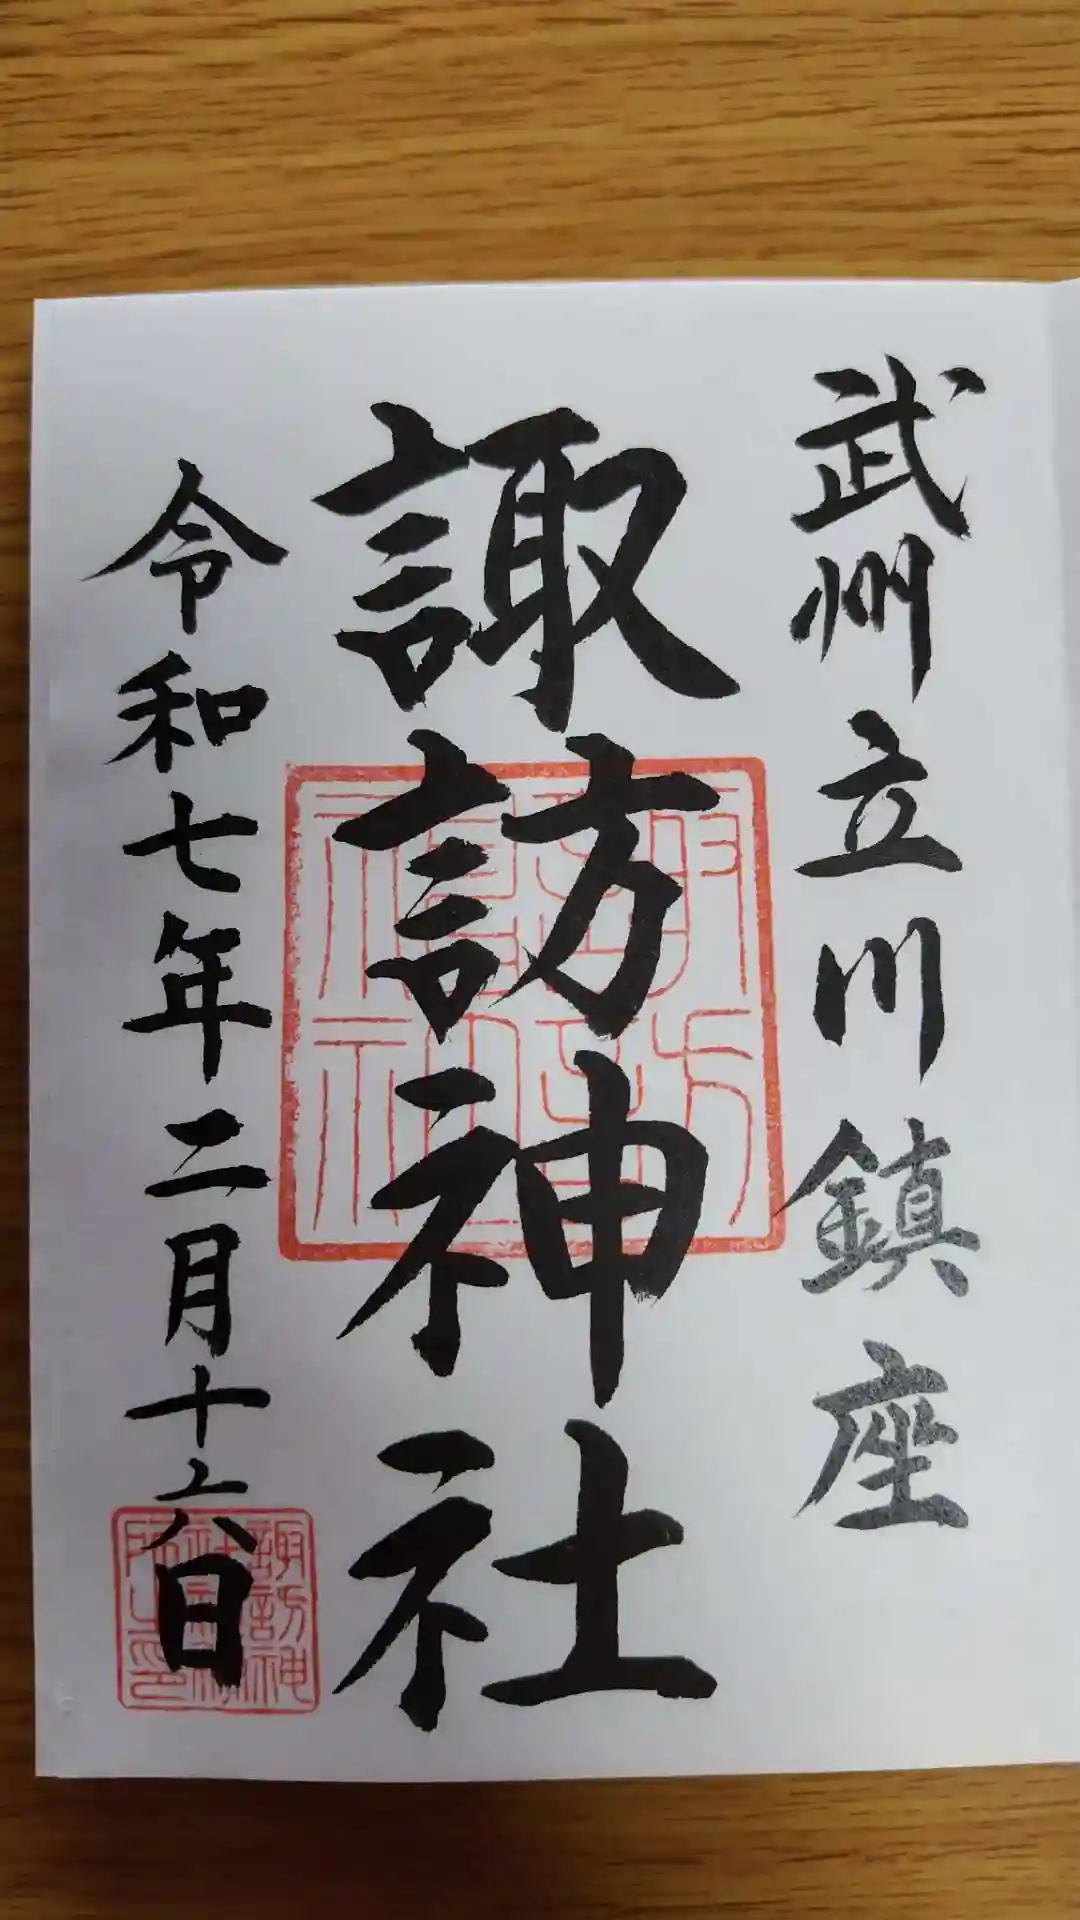 武州立川鎮座
諏訪神社
令和七年二月十六日
諏訪神社
諏訪神